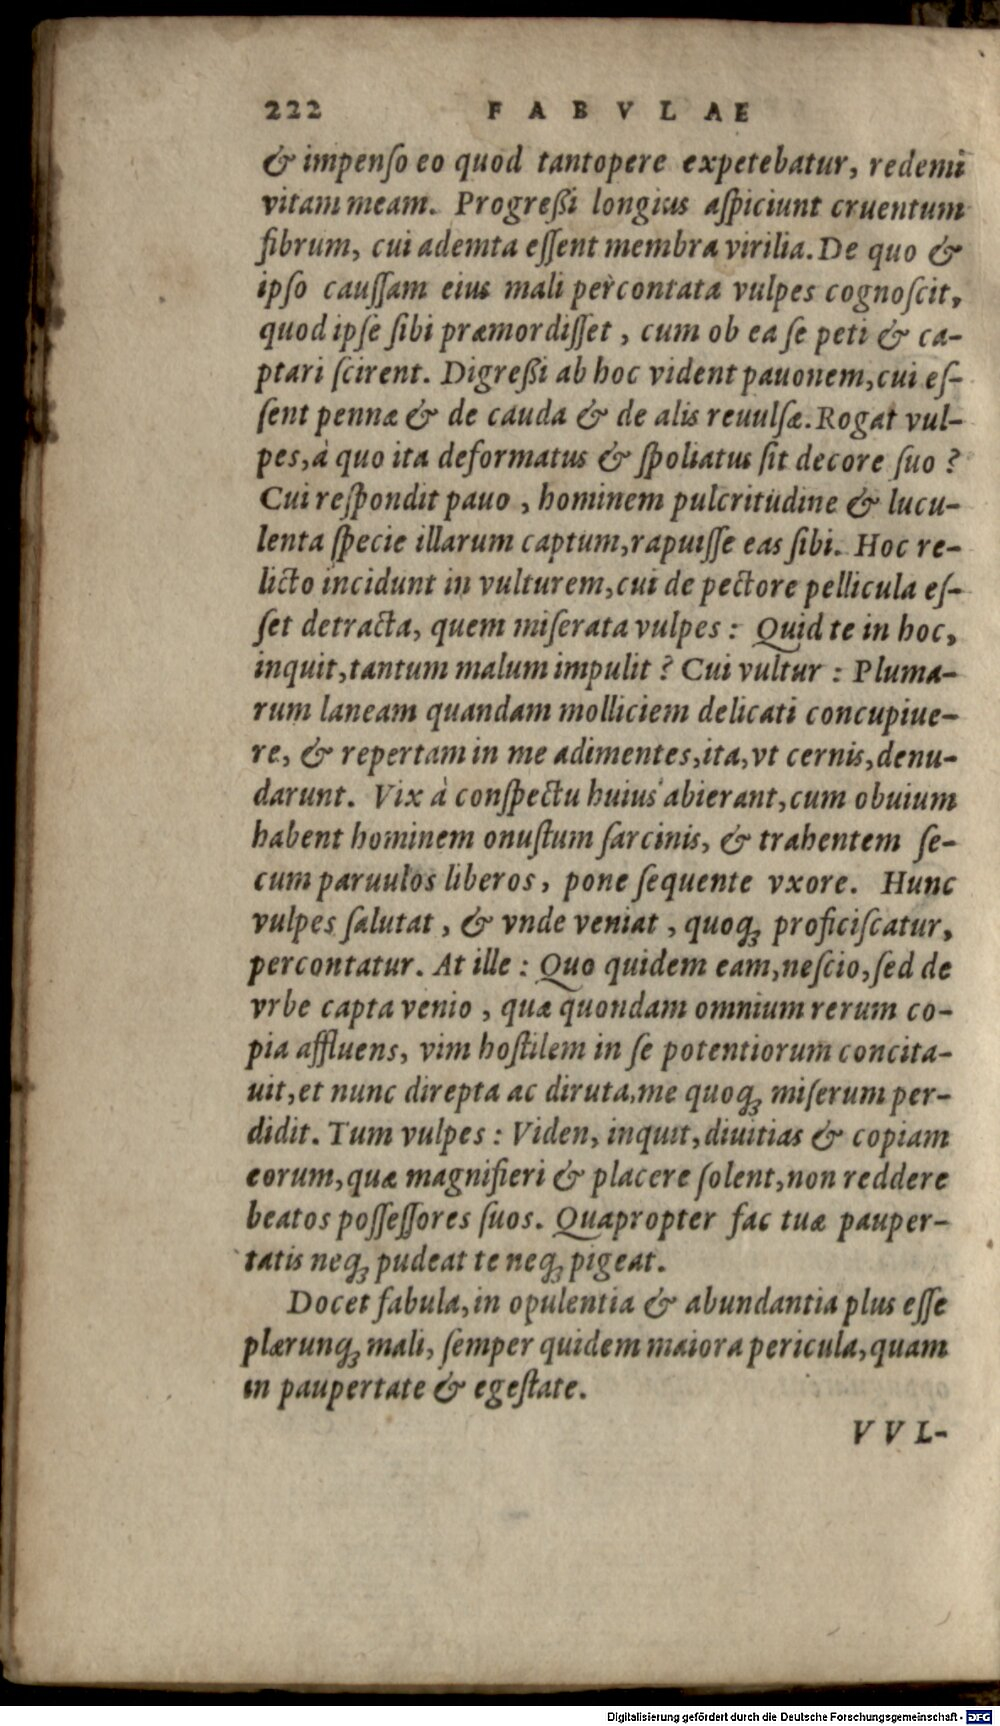 222 FABVLAE
& impenſo eo quod tantopere expetebatur, redemi
vitam meam. Progreßi longius aſpiciunt cruentum
fibrum, cui ademta eſſent membra virilia. De quo &
ipſo cauſſam eius mali percontata vulpes cognoſcit,
quod ipſe ſibi præmordiſſet, cum ob ea ſe peti & ca-
ptari ſcirent. Digreßi ab hoc vident pauonem, cui eſ-
ſent pennæ & de cauda & de alis reuulſæ. Rogat vul-
pes, à quo ita deformatus & ſpoliatus ſit decore ſuo?
Cui reſpondit pauo, hominem pulcritudine & lucu-
lenta ſpecie illarum captum, rapuiſſe eas ſibi. Hoc re-
licto incidunt in vulturem, cui de pectore pellicula eſ-
ſet detracta, quem miſerata vulpes: Quid te in hoc,
inquit, tantum malum impulit? Cui vultur: Pluma-
rum laneam quandam molliciem delicati concupiue-
re, & repertam in me adimentes, ita, vt cernis, denu-
darunt. Vix à conſpectu huius abierant, cum obuium
habent hominem onuſtum ſarcinis, & trahentem ſe-
cum paruulos liberos, pone ſequente vxore. Hunc
vulpes ſalutat, & vnde veniat, quoqꝫ proficiſcatur,
percontatur. At ille: Quo quidem eam, neſcio, ſed de
vrbe capta venio, quæ quondam omnium rerum co-
pia affluens, vim hoſtilem in ſe potentiorum concita-
uit, et nunc direpta ac diruta, me quoqꝫ miſerum per-
didit. Tum vulpes: Viden, inquit, diuitias & copiam
eorum, quæ magnifieri & placere ſolent, non reddere
beatos poſſeſſores ſuos. Quapropter fac tuæ pauper-
tatis neqꝫ pudeat te neqꝫ pigeat.
Docet fabula, in opulentia & abundantia plus eſſe
plærunqꝫ mali, ſemper quidem maiora pericula, quam
in paupertate & egeſtate.
VVL-
Digitalisierung gefördert durch die Deutsche Forschungsgemeinschaft - DFG